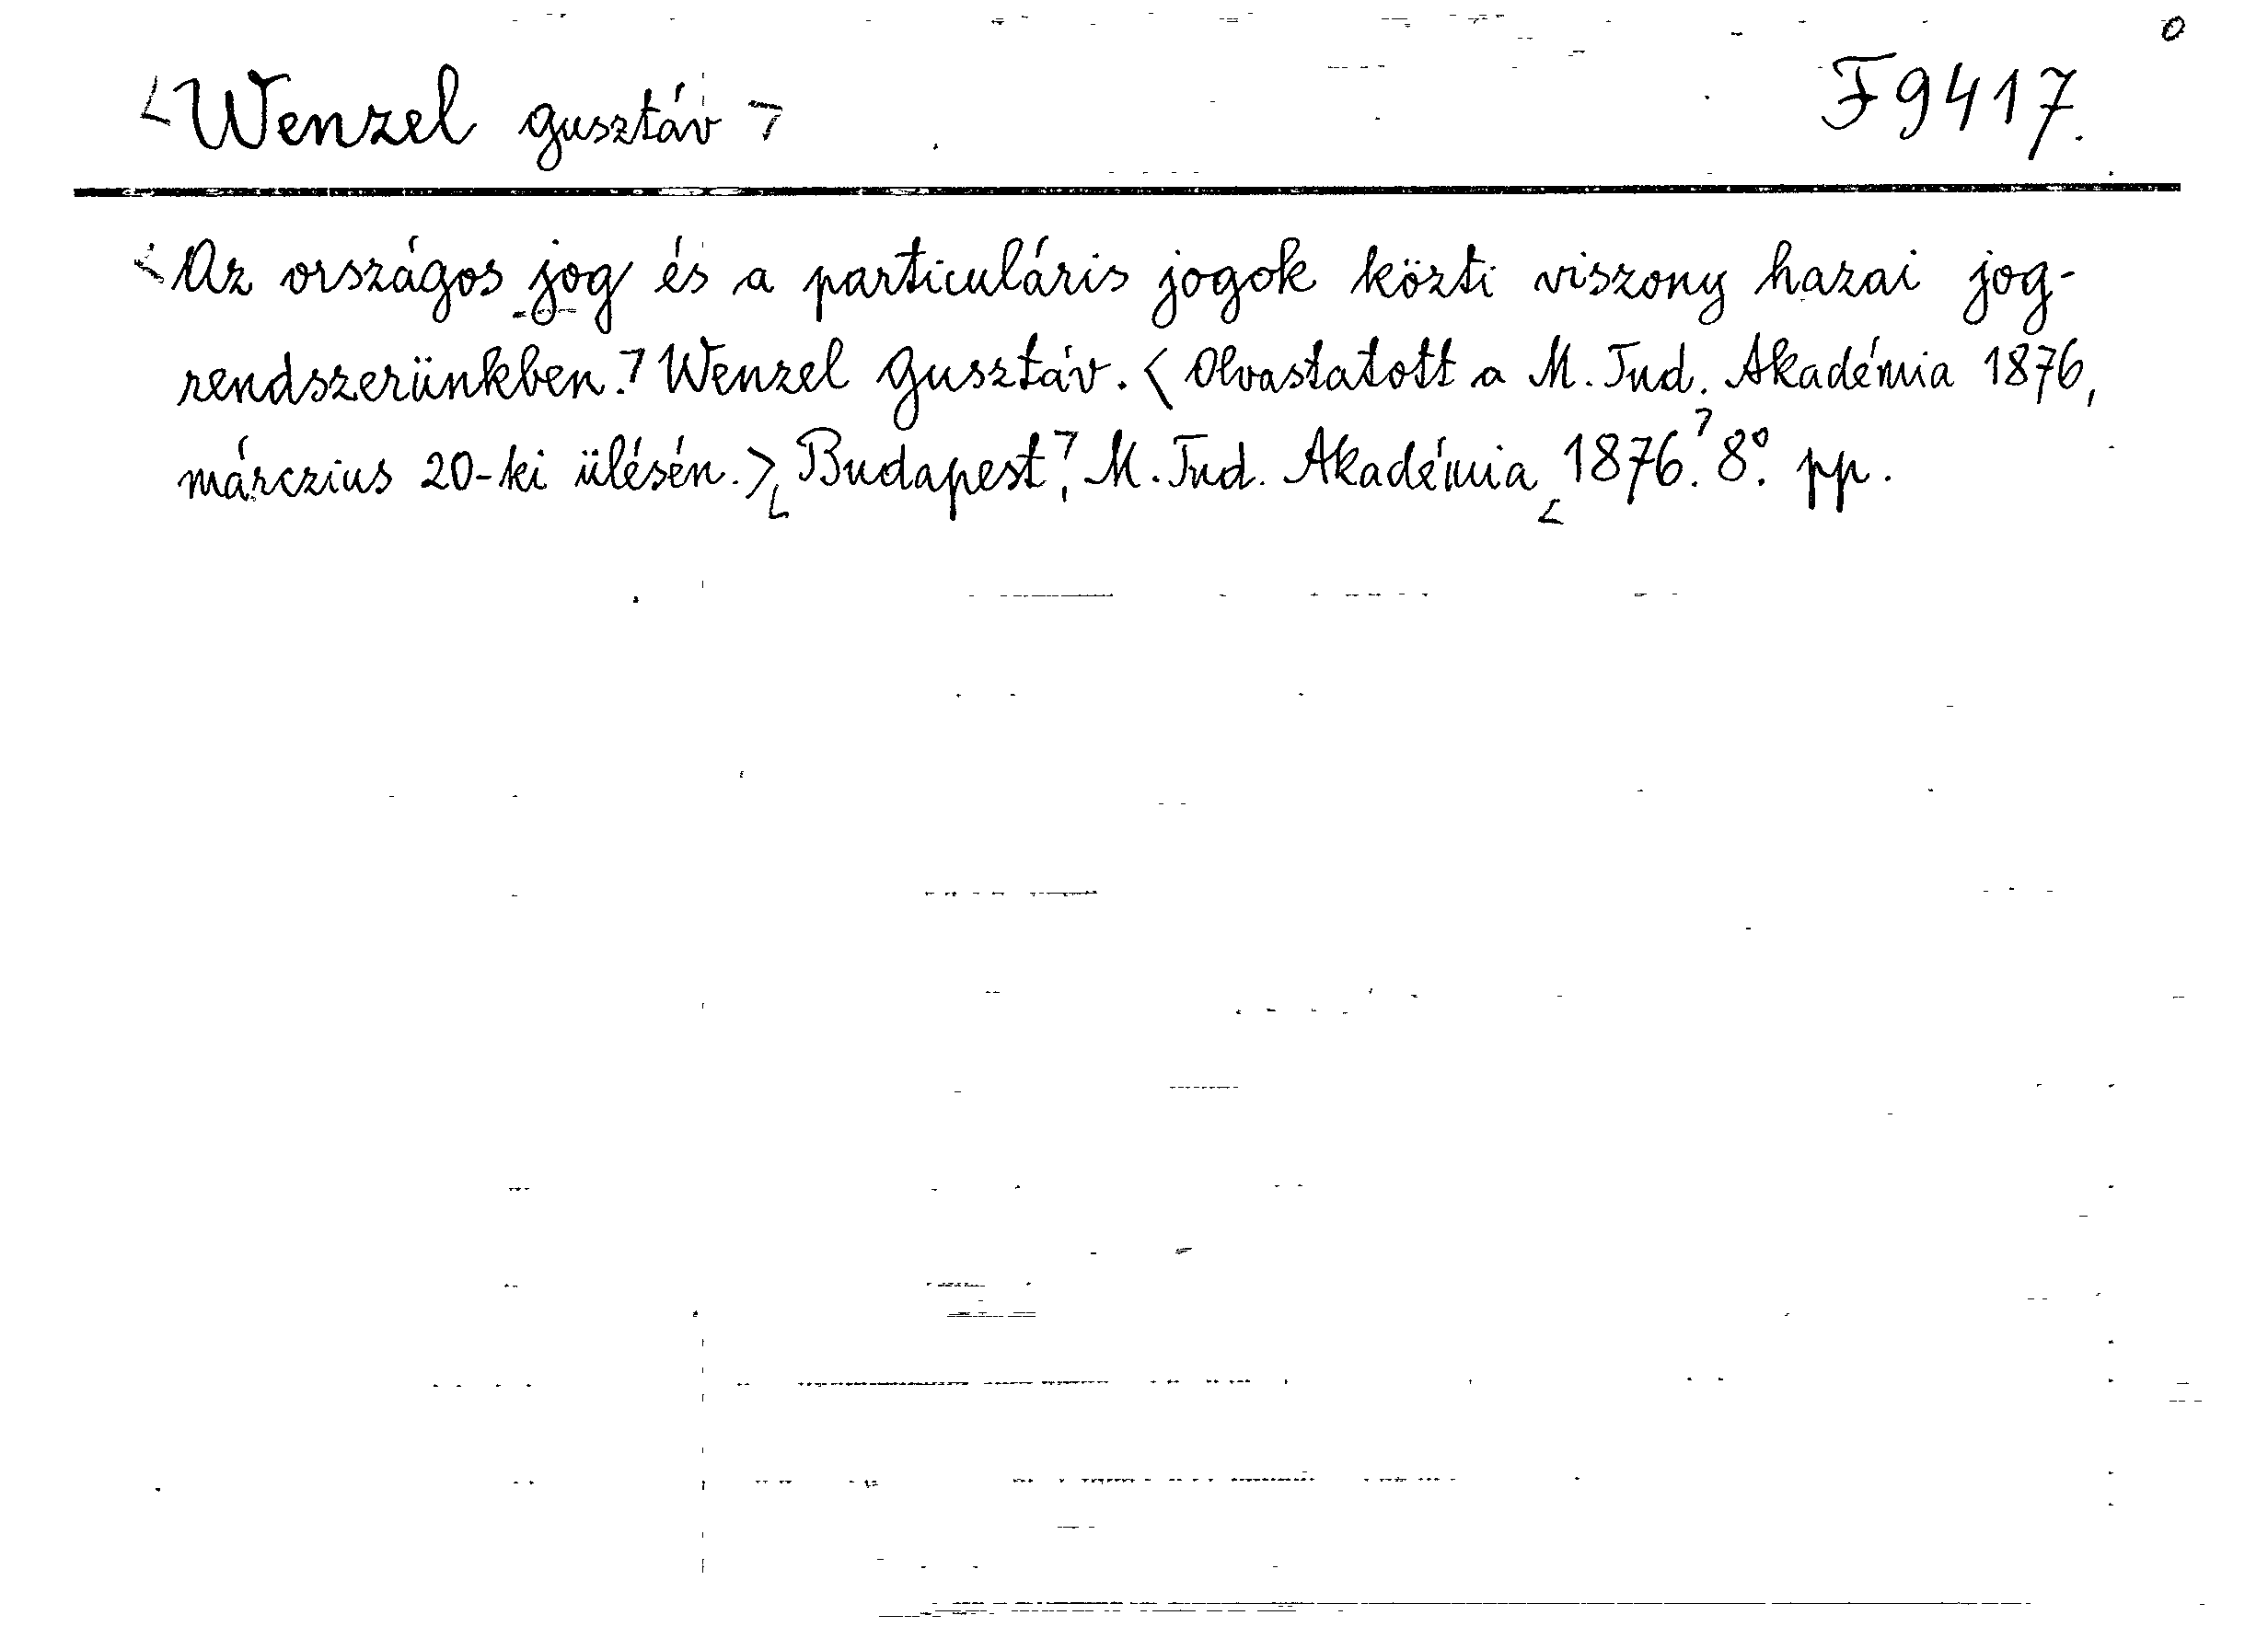 <Wenzel Gusztáv> F9417.
<Az országos jog és a particuláris jogok közti viszony hazai jog-
rendszerünkben.> Wenzel Gusztáv. <Olvastatott a M. Tud. Akadémia 1876,
márczius 20-ki ülésén.> <Budapest>, M. Tud. Akadémia <1876.> 8º. pp.